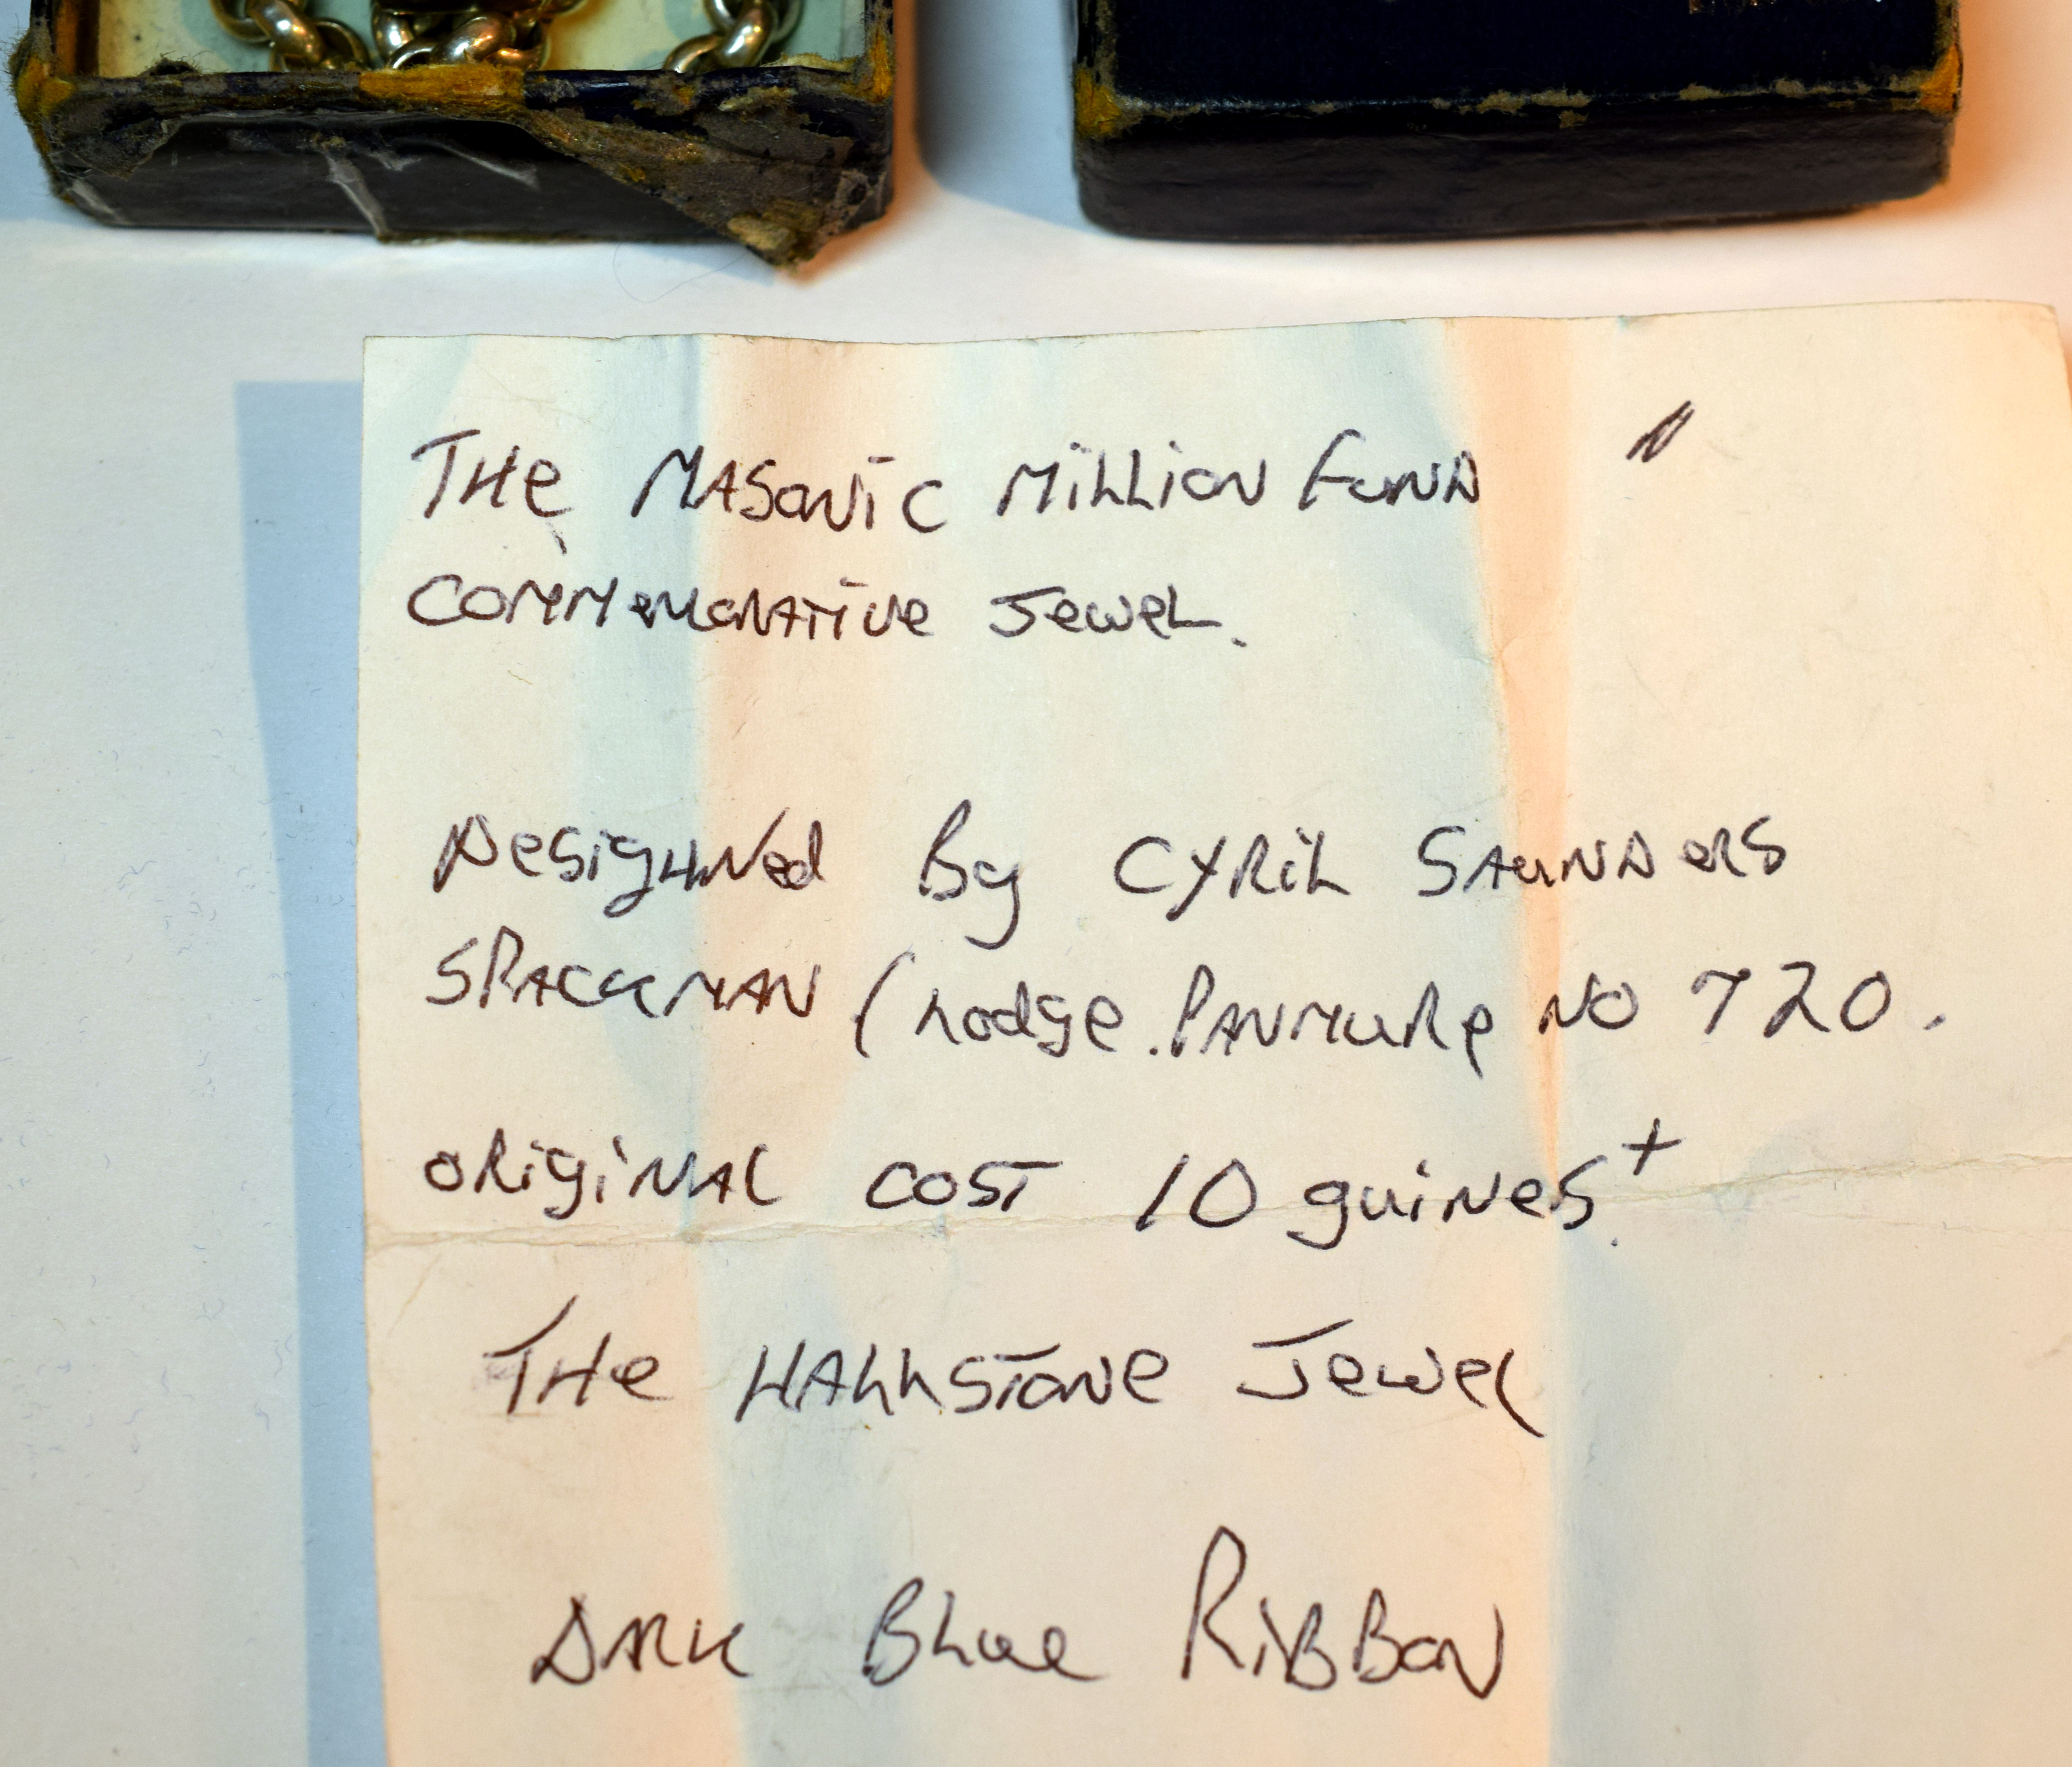 THe MASoNiC MiLLioN FuND "
COMMemoRATiVe JeweL.
DesigHNed By CYRiL SAuNDeRS
SPACKMAN (Lodge. PANMuRe NO 720.
ORigiNAL COST 10 guiNeS+
THe HALLSTONe JeweL
DARK BLue RiBBoN